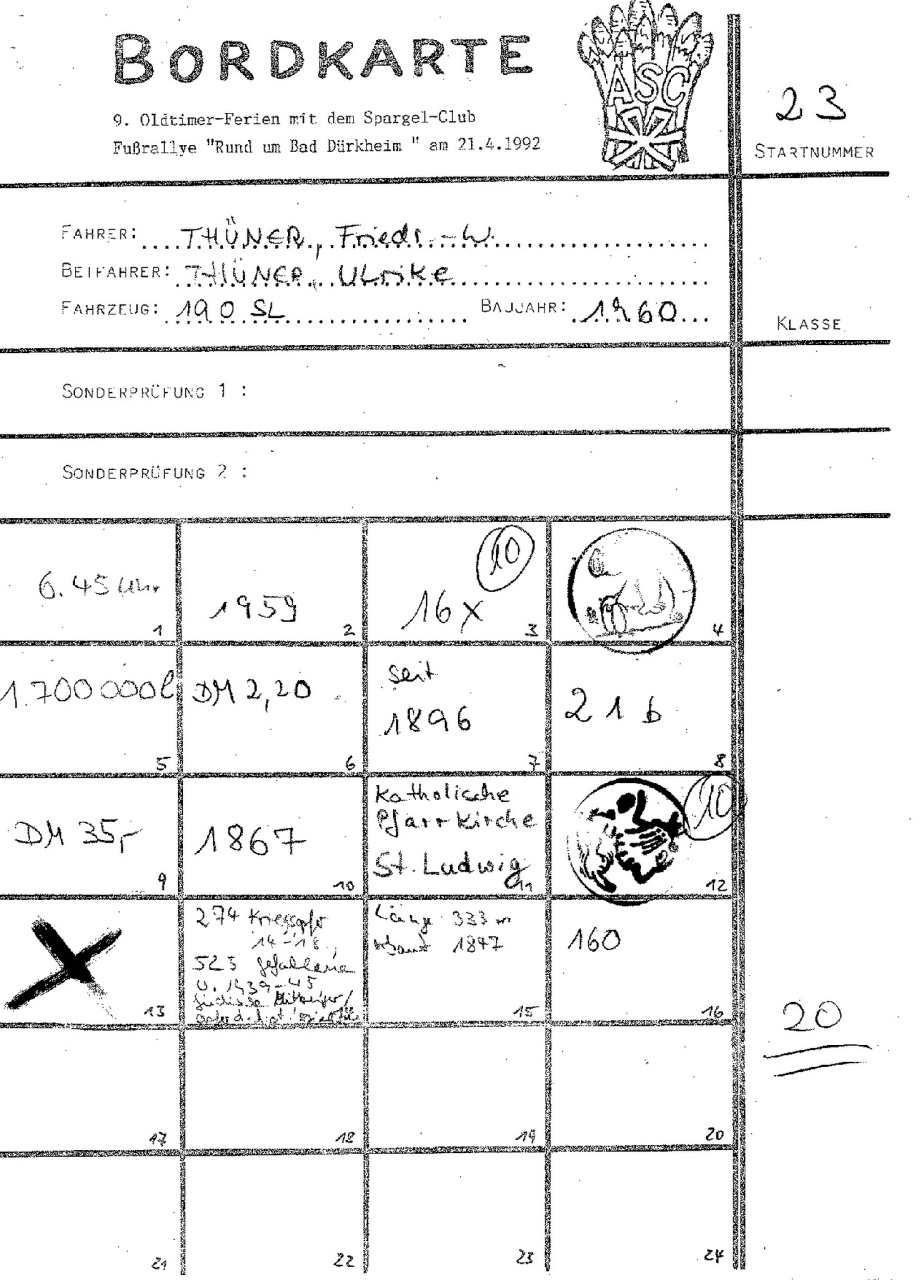 BORDKARTE
ASC
9. Oldtimer-Ferien mit dem Spargel-Club
Fußrallye "Rund um Bad Dürkheim " am 21.4.1992
23
STARTNUMMER
FAHRER: THÜNER, Friedr.-W.
BEIFAHRER: THÜNER, Ulrike
FAHRZEUG: 190 SL BAUJAHR: 1960
KLASSE
SONDERPRÜFUNG 1 :
SONDERPRÜFUNG 2 :
6.45 Uhr
1
1959
2
10
16 x
3
4
1.700 000 l
5
DM 2,20
6
seit
1896
7
21 b
8
DM 35,-
9
1867
10
Katholische
Pfarrkirche
St. Ludwig
11
10
12
13
274 Kriegsopfer
14-18,
523 gefallene
u. 1939-45
14
Länge 333 m
1847
15
160
16
20
17
18
19
20
21
22
23
24